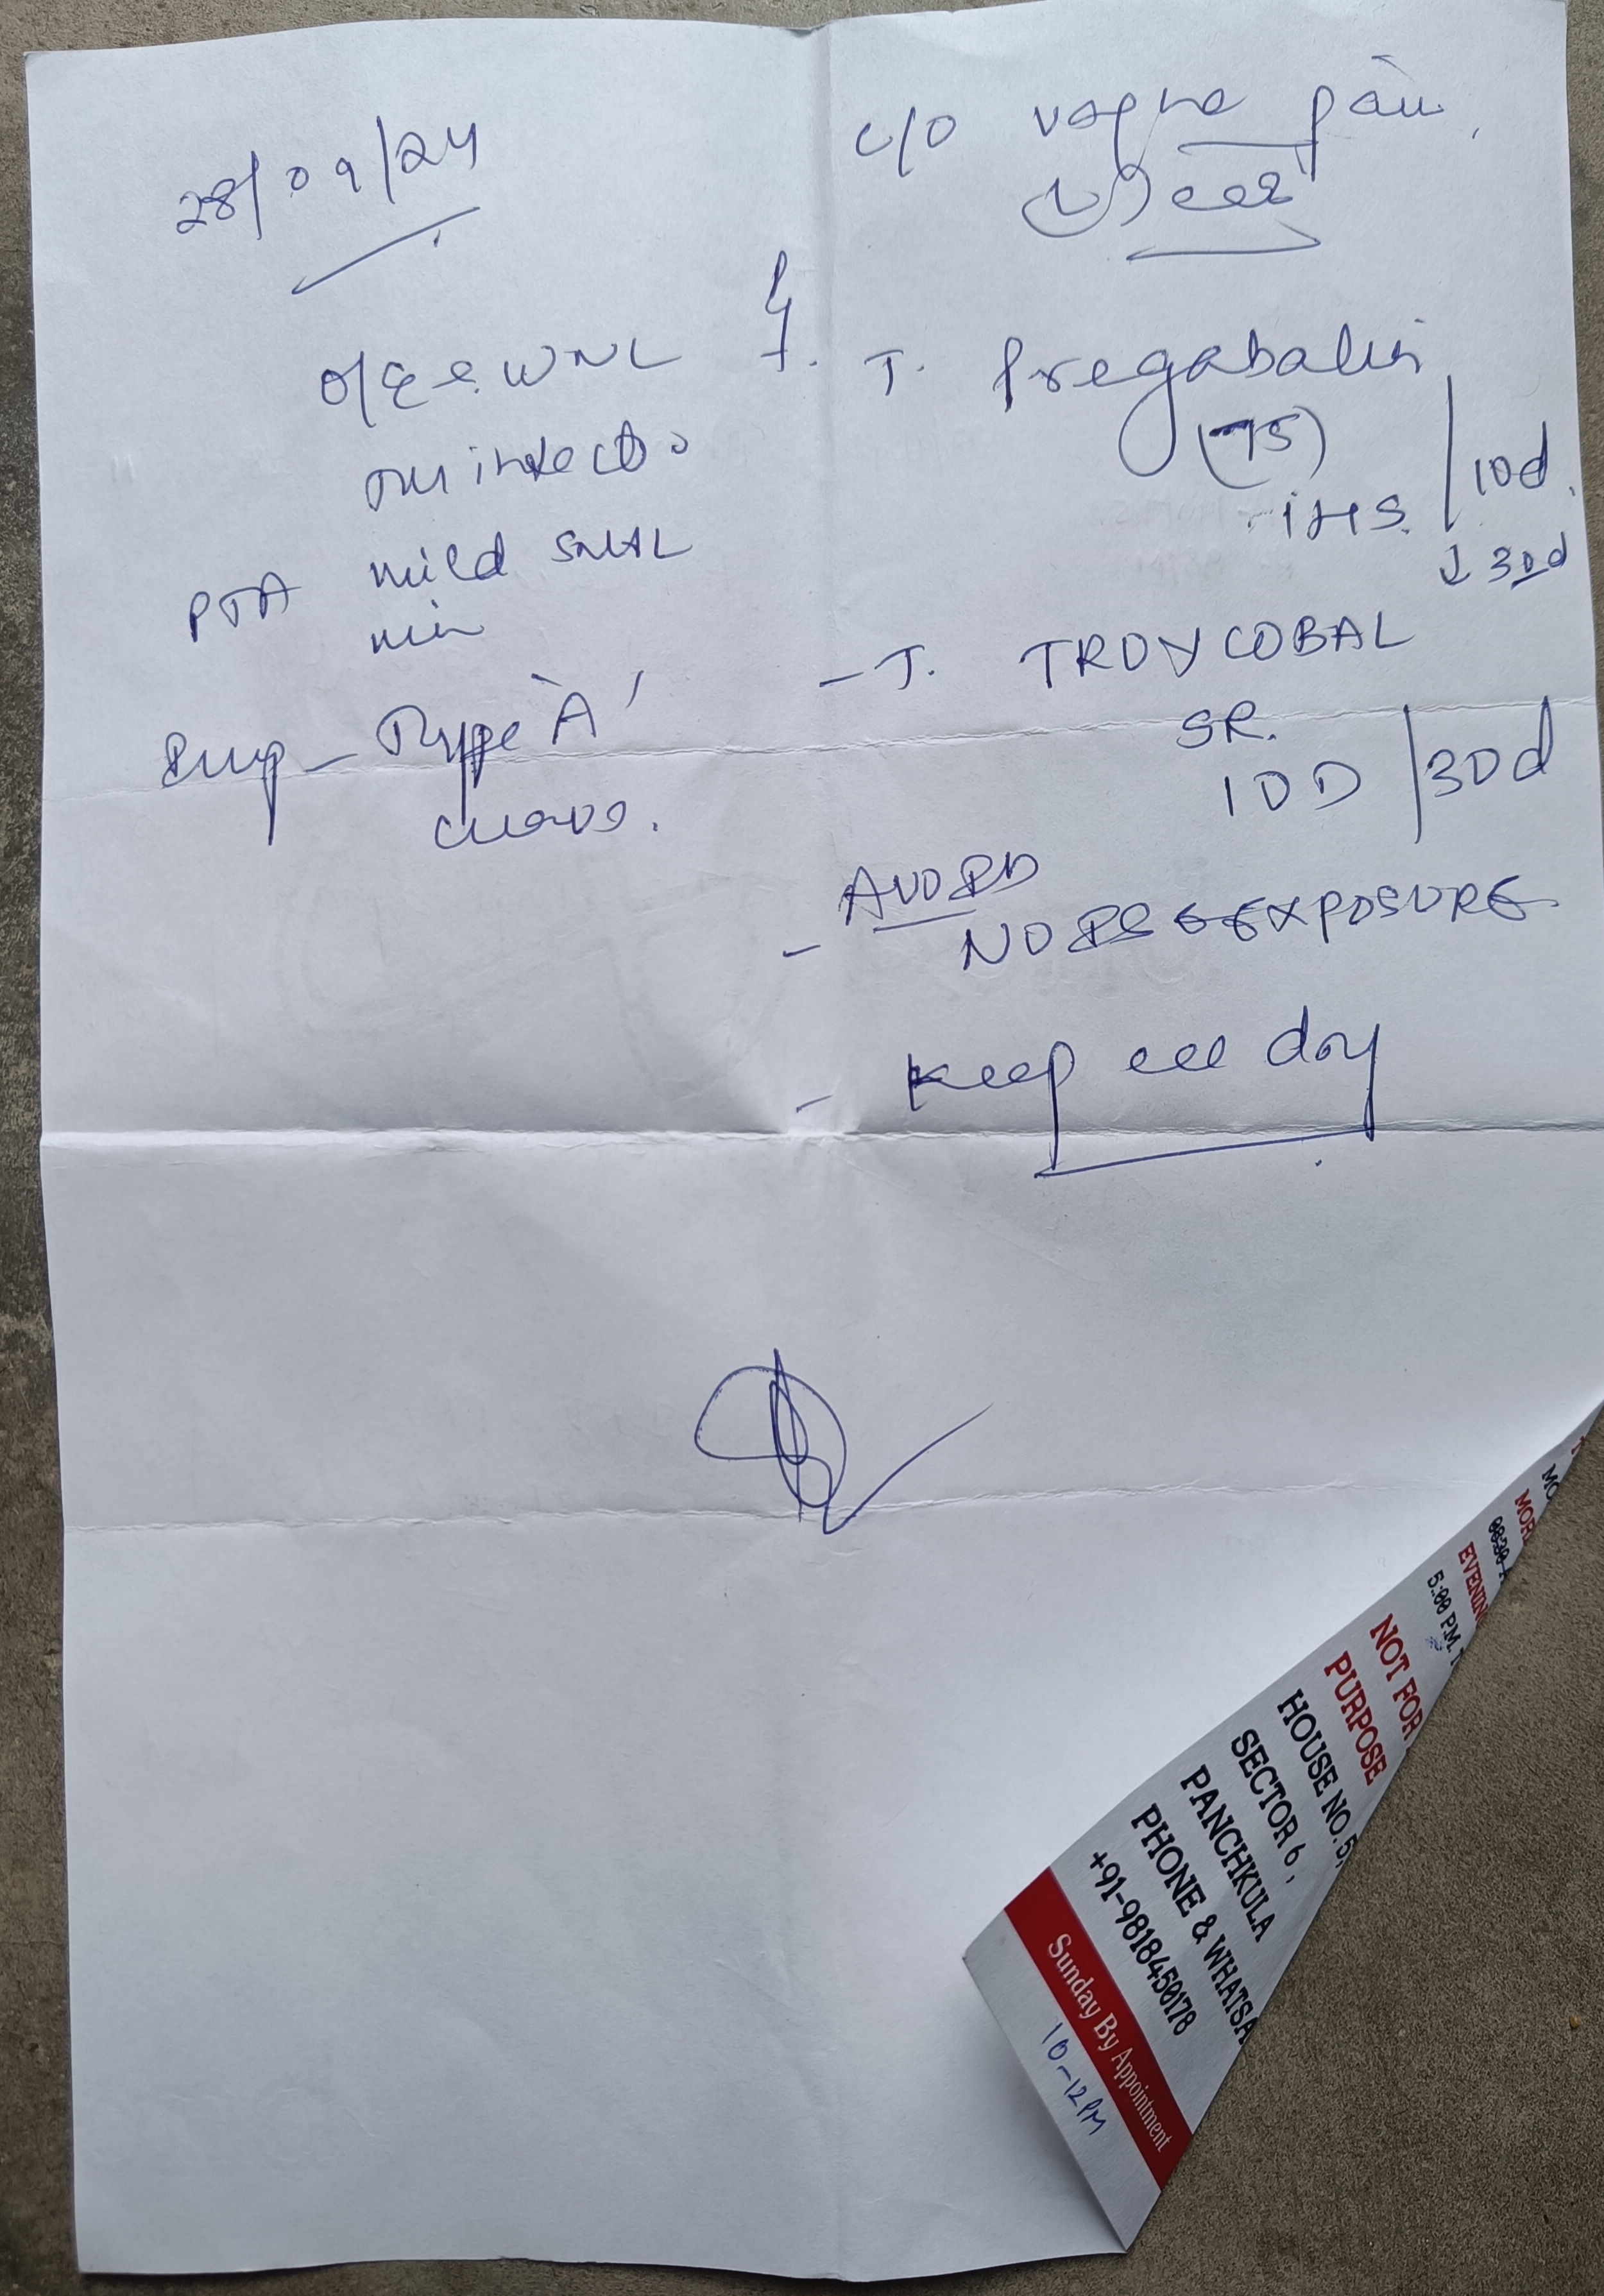 28/09/24
C/O vague pain
(L) ear
O/E e. WNL
TM intact
PTA mild SNHL
Imp - Type 'A'
curve.
T. Pregabalin
(75)
1HS. / 10d.
↓ 30d
- T. TROYCOBAL
SR.
1OD / 30d
- AVOID
NOISE EXPOSURE
- Keep ear dry
MOR
EVENIN
5:00 PM. T
NOT FOR
PURPOSE
HOUSE NO. 5,
SECTOR 6,
PANCHKULA
PHONE & WHATSA
+91-9818450178
Sunday By Appointment
10-12PM